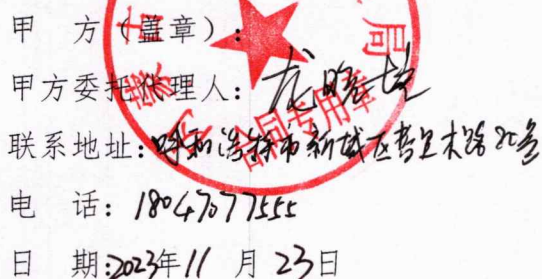 甲 方（盖章）：
甲方委托代理人：
联系地址：呼和浩特市新城区
电 话：18047077555
日 期：2023年11月23日
合同专用章